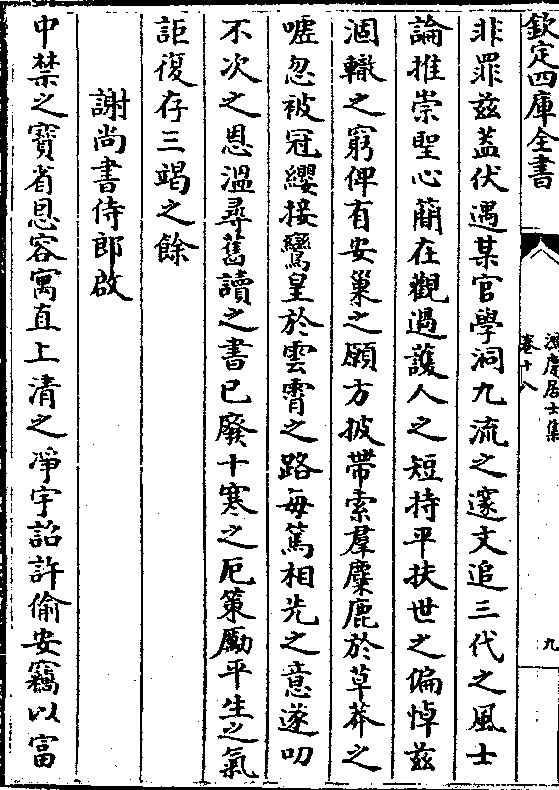 欽定四庫全書
鴻慶居士集
卷十八
九
非罪茲葢伏遇某官學洞九流之邃文追三代之風士
論推崇聖心蕑在觀過護人之短持平扶世之偏悼茲
涸轍之窮俾有安巢之願方披帶索羣麋鹿於草莽之
噓忽被冠纓接鸞皇於雲霄之路毎篤相先之意遂叨
不次之恩溫尋舊讀之書已廢十寒之厄策勵平生之氣
詎復存三竭之餘
謝尚書侍郎啟
中禁之寶省恩容寓直上清之凈宇詔許偷安竊以富